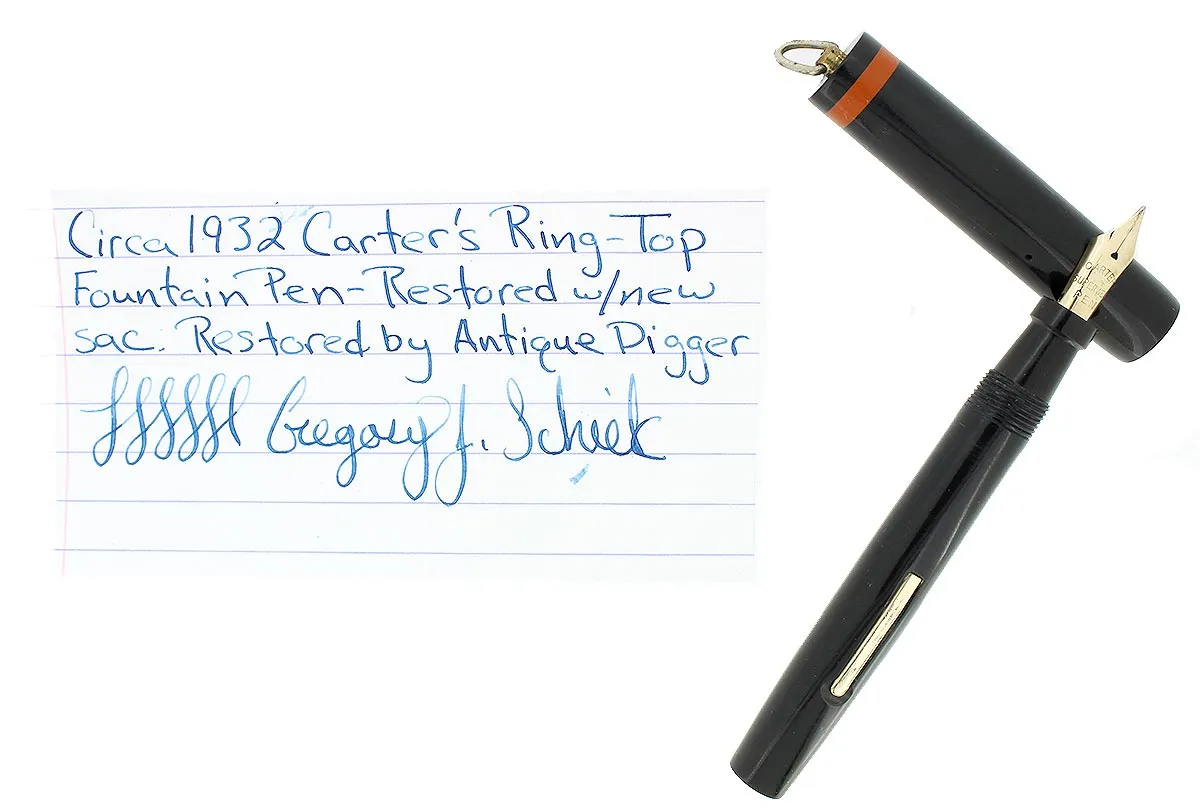 Circa 1932 Carter's Ring-Top
Fountain Pen- Restored w/new
sac. Restored by Antique Digger
Gregory J. Schiek
CARTER
SUPER
PEN